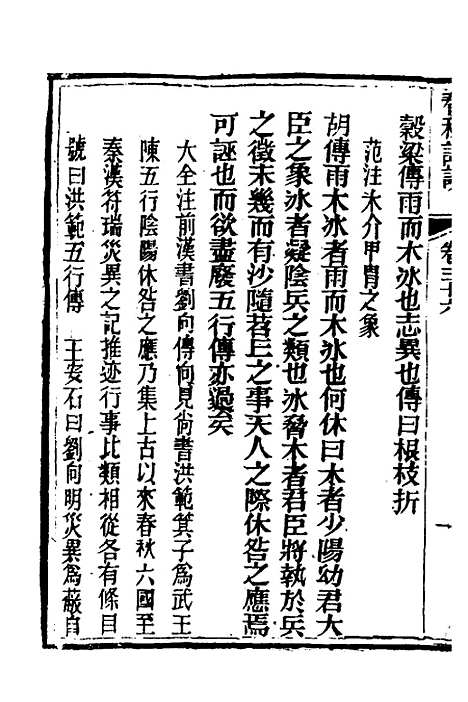 卷三十六
穀梁傳雨而木冰也志異也傳曰根枝折
范注冰介甲胄之象
胡傳雨木冰者雨而木冰也何休曰木者少陽幼君大
臣之象冰者凝陰兵之類也冰脅木者君臣將執於兵
之徵未幾而有沙隨苕丘之事天人之際休咎之應焉
可誣也而欲盡廢五行傳亦過矣
大全注前漢書劉向傳向見尚書洪範箕子為武王
陳五行陰陽休咎之應乃集上古以來春秋六國至
秦漢符瑞災異之記推迹行事比類相從各有條目
號曰洪範五行傳　王安石曰劉向明災異為蔽自